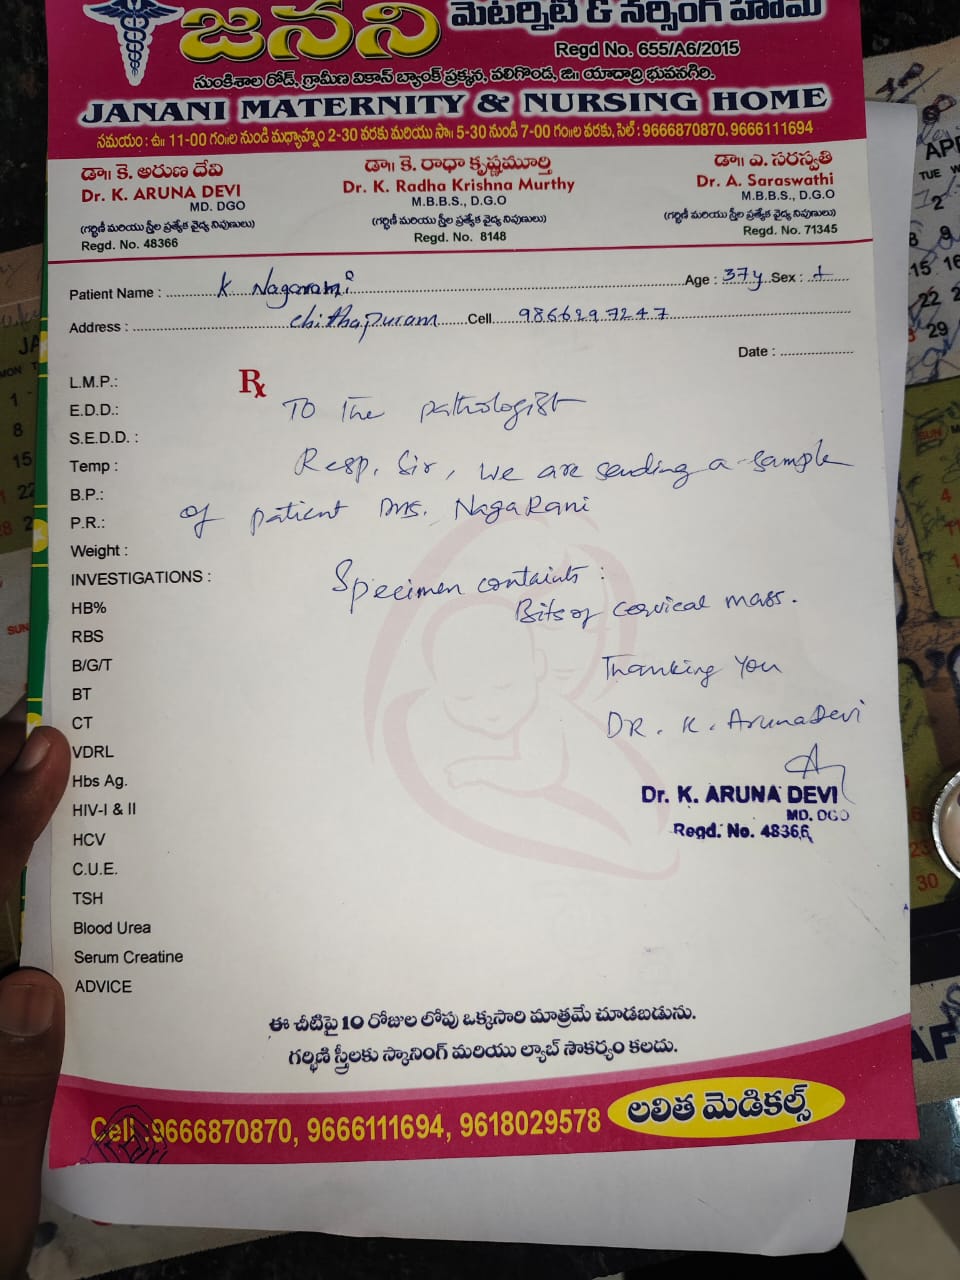 జనని మెటర్నిటి & నర్సింగ్ హోమ్
Regd No. 655/A6/2015
సుంకిశాల రోడ్, గ్రామీణ వికాస్ బ్యాంక్ ప్రక్కన, వలిగొండ, జి॥ యాదాద్రి భువనగిరి.
JANANI MATERNITY & NURSING HOME
సమయం : ఉ॥ 11-00 గం॥ల నుండి మధ్యాహ్నం 2-30 వరకు మరియు సా॥ 5-30 నుండి 7-00 గం॥ల వరకు, సెల్ : 9666870870, 9666111694
డా॥ కె. అరుణ దేవి
Dr. K. ARUNA DEVI
MD. DGO
(గర్భిణీ మరియు స్త్రీల ప్రత్యేక వైద్య నిపుణులు)
Regd. No. 48366
డా॥ కె. రాధా కృష్ణమూర్తి
Dr. K. Radha Krishna Murthy
M.B.B.S., D.G.O
(గర్భిణీ మరియు స్త్రీల ప్రత్యేక వైద్య నిపుణులు)
Regd. No. 8148
డా॥ ఎ. సరస్వతి
Dr. A. Saraswathi
M.B.B.S., D.G.O
(గర్భిణీ మరియు స్త్రీల ప్రత్యేక వైద్య నిపుణులు)
Regd. No. 71345
Patient Name : K Nagarani Age : 37y Sex : +
Address : chithapuram Cell 9866297247
Date :
L.M.P.:
Rx
To the pathologist
E.D.D.:
S.E.D.D. :
Temp :
Resp. Sir, we are sending a sample
B.P.:
of patient Mrs. NagaRani
P.R.:
Weight :
INVESTIGATIONS :
Specimen containts :
HB%
Bits of cervical mass.
RBS
B/G/T
Thanking You
BT
CT
DR. K. ArunaDevi
VDRL
Hbs Ag.
Dr. K. ARUNA DEVI
MD. DGO
HIV-I & II
Regd. No. 48366
HCV
C.U.E.
TSH
Blood Urea
Serum Creatine
ADVICE
ఈ చీటిపై 10 రోజుల లోపు ఒక్కసారి మాత్రమే చూడబడును.
గర్భిణి స్త్రీలకు స్కానింగ్ మరియు ల్యాబ్ సౌకర్యం కలదు.
Cell :9666870870, 9666111694, 9618029578
లలిత మెడికల్స్